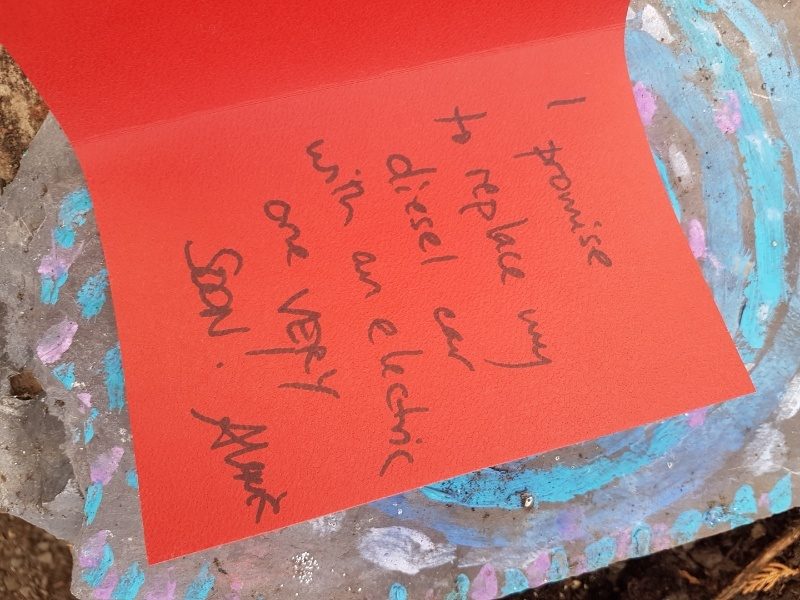 I promise
to replace my
diesel car
with an electric
one VERY
SOON.